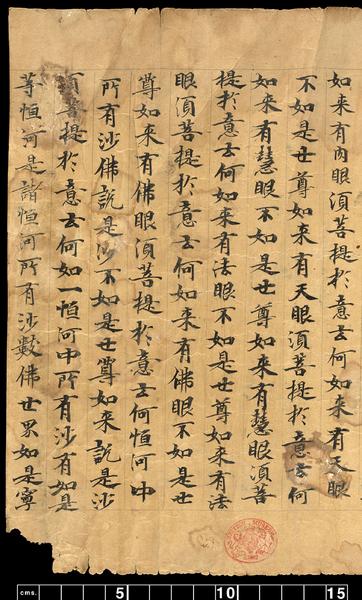 如来有肉眼須菩提於意云何如来有天眼
不如是世尊如来有天眼須菩提於意云何
如来有慧眼不如是世尊如来有慧眼須菩
提於意云何如来有法眼不如是世尊如来有法
眼須菩提於意云何如来有佛眼不如是世
尊如来有佛眼須菩提於意云何恒河中
所有沙佛說是沙不如是世尊如来說是沙
須菩提於意云何如一恒河中所有沙有如是
等恒河是諸恒河所有沙數佛世界如是寧
cms. 5 10 15